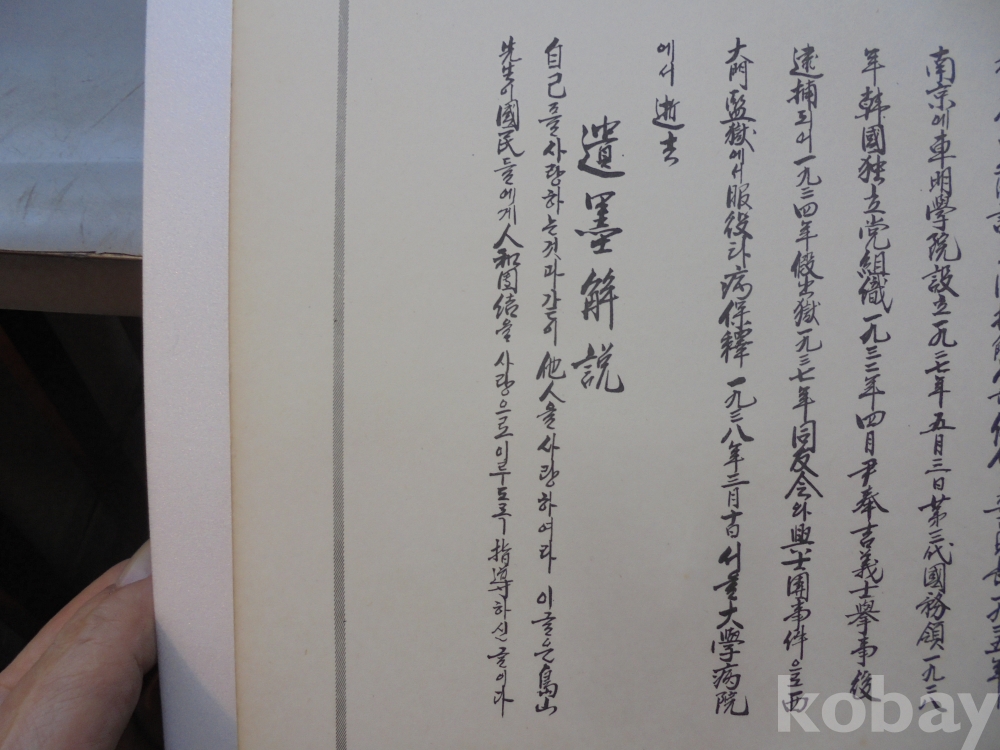 南京에東明學院設立一九二七年五月三日第三代國務領一九二八
年韓國独立党組織一九三二年四月尹奉吉義士擧事後
逮捕되어一九三四年假出獄一九三七年同友会와興士團事件으로西
大門監獄에서服役타病保釋 一九三八年三月十日서울大學病院
에서 逝去
遺墨解説
自己를사랑하는것과같이他人을사랑하여라 이글은島山
先生이國民들에게人和団結을사랑으로이루도록指導하신글이다
kobay